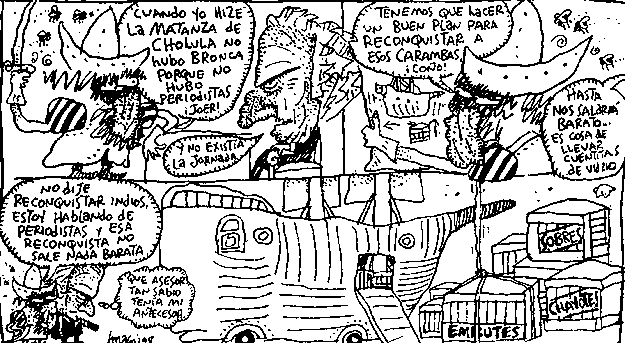 CUANDO YO HIZE
LA MATANZA DE
CHOLULA NO
HUBO BRONCA
PORQUE NO
HUBO
PERIODISTAS
¡JOER!
Y NO EXISTIA
LA JORNADA
TENEMOS QUE HACER
UN BUEN PLAN PARA
RECONQUISTAR A
ESOS CARAMBAS,
¡COÑO!
HASTA
NOS SALDRIA
BARATO...
ES COSA DE
LLEVAR
CUENTITAS
DE VIDRIO
NO DIJE
RECONQUISTAR INDIOS,
ESTOY HABLANDO DE
PERIODISTAS Y ESA
RECONQUISTA NO
SALE NADA BARATA
QUE ASESOR
TAN SABIO
TENIA MI
ANTECESOR
SOBRES
CHAYOTES
EMBUTES